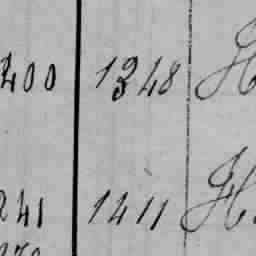 400 1348 H
241 1411 H